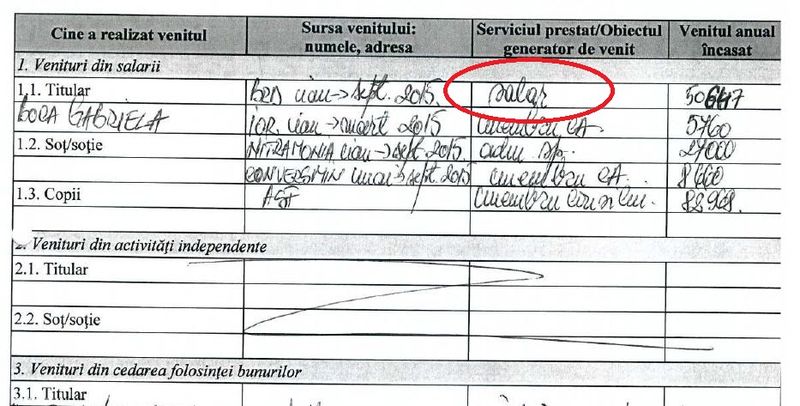 Cine a realizat venitul Sursa venitului: numele, adresa Serviciul prestat/Obiectul generator de venit Venitul anual încasat
1. Venituri din salarii
1.1. Titular BRD ian→sept. 2015 salar 50647
BOCA GABRIELA IOR. ian→mart 2015 membru CA. 5760
1.2. Soț/soție NITRAMONIA ian→sept. 2015 adm sp. 27000
CONVERSMIN →sept. 2015 membru CA.
1.3. Copii ASF membru
2. Venituri din activități independente
2.1. Titular
2.2. Soț/soție
3. Venituri din cedarea folosinței bunurilor
3.1. Titular